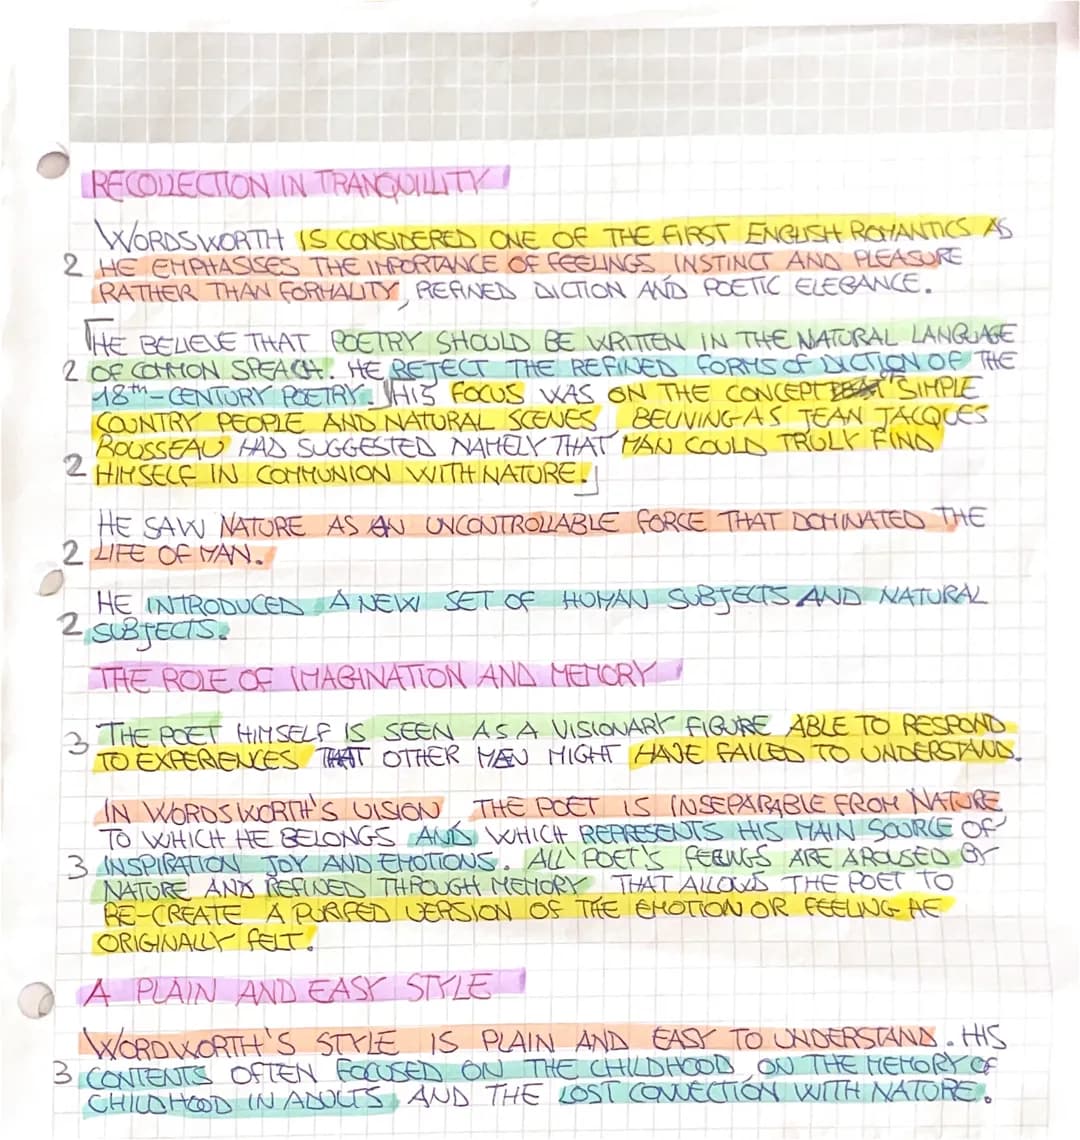 RECOLLECTION IN TRANQUILLITY
WORDSWORTH IS CONSIDERED ONE OF THE FIRST ENGLISH ROMANTICS AS
2 HE EMPHASISES THE IMPORTANCE OF FEELINGS INSTINCT AND PLEASURE
RATHER THAN FORMALITY, REFINED DICTION AND POETIC ELEGANCE.
HE BELIEVE THAT POETRY SHOULD BE WRITTEN IN THE NATURAL LANGUAGE
2 OF COMMON SPEACH. HE REJECT THE REFINED FORMS OF DICTION OF THE
18th-CENTURY POETRY. HIS FOCUS WAS ON THE CONCEPT SIMPLE
COUNTRY PEOPLE AND NATURAL SCENES, BELIVING AS JEAN JACQUES
ROUSSEAU HAD SUGGESTED NAMELY THAT MAN COULD TRULY FIND
2 HIMSELF IN COMMUNION WITH NATURE.
HE SAW NATURE AS AN UNCONTROLLABLE FORCE THAT DOMINATED THE
2 LIFE OF MAN.
HE INTRODUCED A NEW SET OF HUMAN SUBJECTS AND NATURAL
2 SUBJECTS.
THE ROLE OF IMAGINATION AND MEMORY
3 THE POET HIMSELF IS SEEN AS A VISIONARY FIGURE ABLE TO RESPOND
TO EXPERIENCES THAT OTHER MEN MIGHT HAVE FAILED TO UNDERSTAND.
IN WORDSWORTH'S VISION THE POET IS INSEPARABLE FROM NATURE
TO WHICH HE BELONGS AND WHICH REPRESENTS HIS MAIN SOURCE OF
3 INSPIRATION JOY AND EMOTIONS. ALL POET'S FEELINGS ARE AROUSED BY
NATURE AND REFINED THROUGH MEMORY THAT ALLOWS THE POET TO
RE-CREATE A PURIFED VERSION OF THE EMOTION OR FEELING HE
ORIGINALLY FELT.
A PLAIN AND EASY STYLE
WORDWORTH'S STYLE IS PLAIN AND EASY TO UNDERSTAND. HIS
3 CONTENTS OFTEN FOCUSED ON THE CHILDHOOD, ON THE MEMORY OF
CHILDHOOD IN ADULTS, AND THE LOST CONNECTION WITH NATURE.